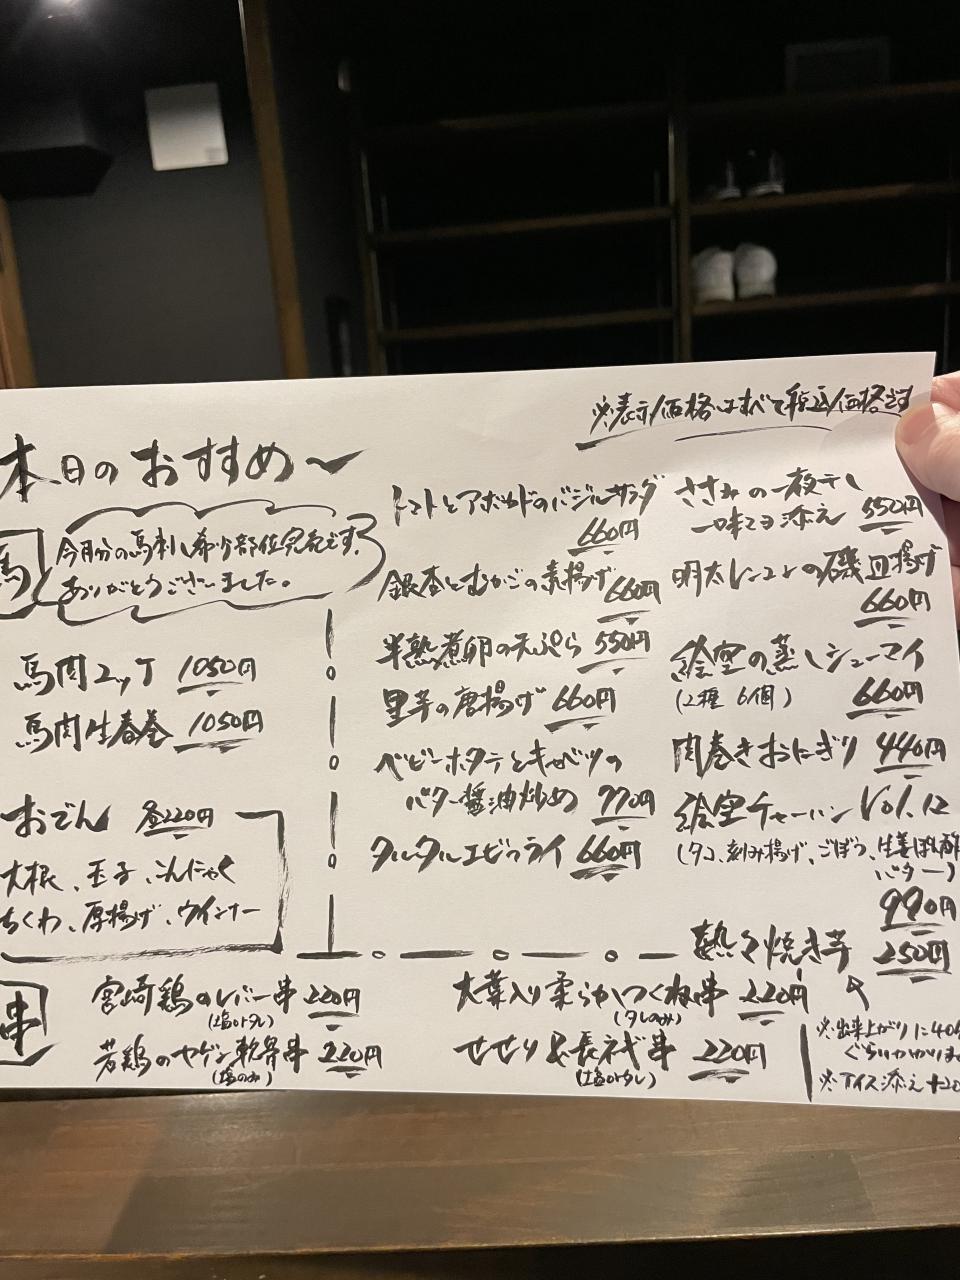 ※表示価格はすべて税込価格です
本日のおすすめ
馬
今月分の馬刺し希少部位完売です。
ありがとうございました。
馬肉ユッケ 1050円
馬肉生春巻 1050円
おでん 各220円
大根、玉子、こんにゃく
ちくわ、厚揚げ、ウインナー
トマトとアボカドのバジルサラダ
660円
銀杏とむかごの素揚げ 660円
半熟煮卵の天ぷら 550円
里芋の唐揚げ 660円
ベビーホタテとキャベツの
バター醤油炒め 770円
タルタルエビフライ 660円
ささみの一夜干し
一味マヨ添え 550円
明太レンコンの磯辺揚げ
660円
絵空の蒸しシューマイ
(2種 6個) 660円
肉巻きおにぎり 440円
絵空チャーハン Vol.12
(タコ、刻み揚げ、ごぼう、生姜ぽん酢
バター)
990円
熱々焼き芋 250円
※出来上がりに40分
ぐらいかかります
※アイス添え+20
串
宮崎鶏のレバー串 220円
(塩orタレ)
若鶏のヤゲン軟骨串 220円
(塩のみ)
大葉入り柔らかつくね串 220円
(タレのみ)
せせりと長ネギ串 220円
(塩orタレ)